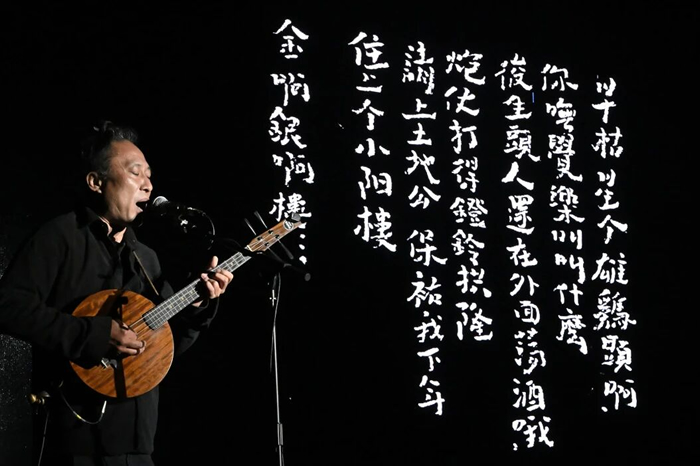 个雄鷄頭啊
你嘸覺 叫什麼
後生頭人還在外面蕩酒哦
炮仗打得鐙鈴拱隆
上土地公 保祐我下年
住上个小阳樓
金啊銀啊樓…